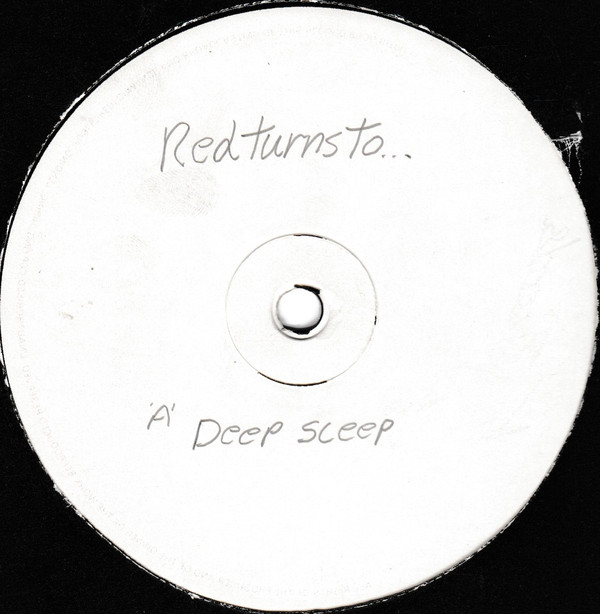 Red turns to...
'A' Deep Sleep